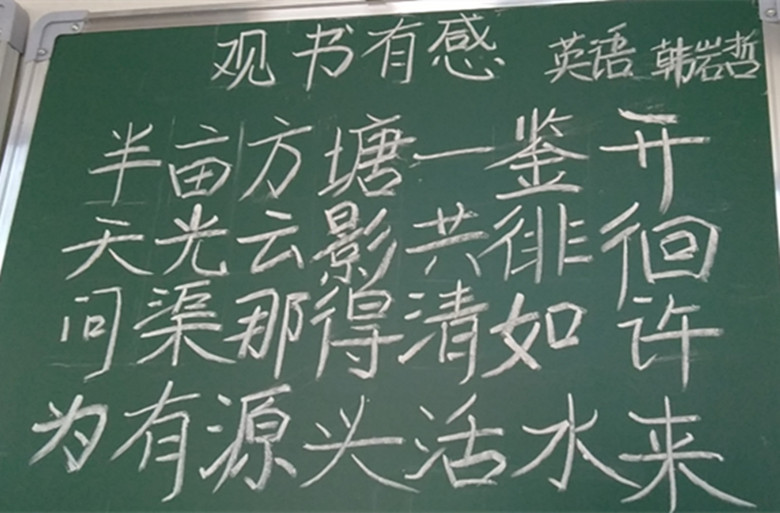 观书有感 英语 韩岩哲
半亩方塘一鉴开
天光云影共徘徊
问渠那得清如许
为有源头活水来